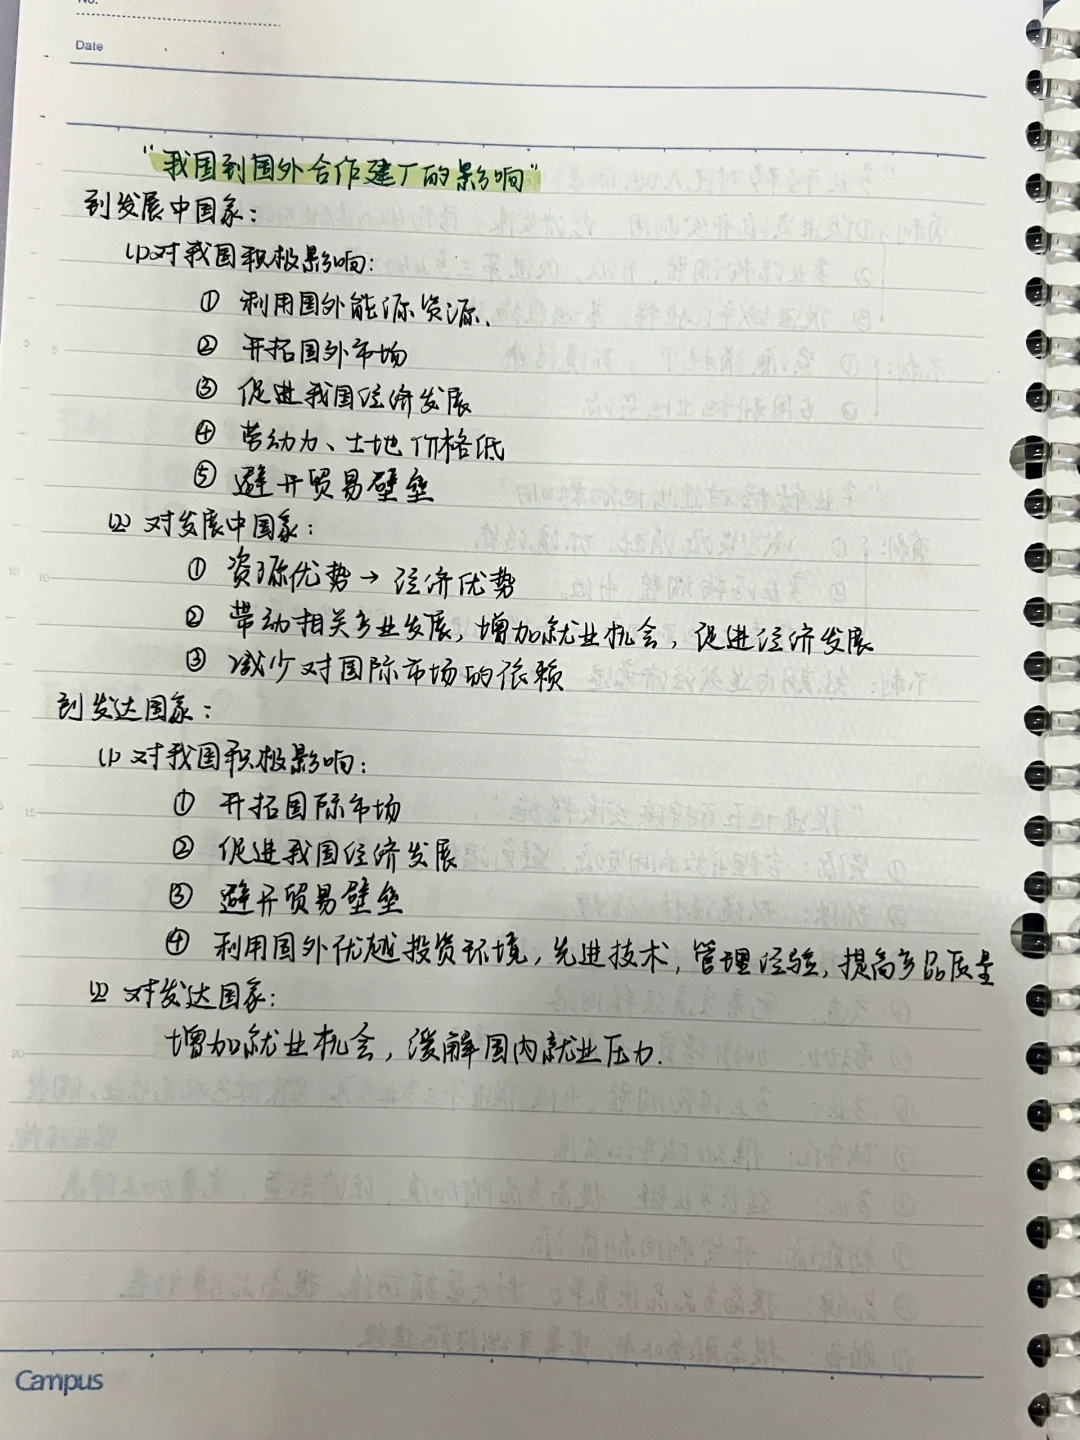 No.
Date
"我国到国外合作建厂的影响"
到发展中国家:
(1)对我国积极影响:
① 利用国外能源资源、
② 开拓国外市场
③ 促进我国经济发展
④ 劳动力、土地价格低
⑤ 避开贸易壁垒
(2) 对发展中国家:
① 资源优势→经济优势
② 带动相关产业发展,增加就业机会,促进经济发展
③ 减少对国际市场的依赖
到发达国家:
(1) 对我国积极影响:
① 开拓国际市场
② 促进我国经济发展
③ 避开贸易壁垒
④ 利用国外优越投资环境,先进技术,管理经验,提高产品质量
(2) 对发达国家:
增加就业机会,缓解国内就业压力.
Campus